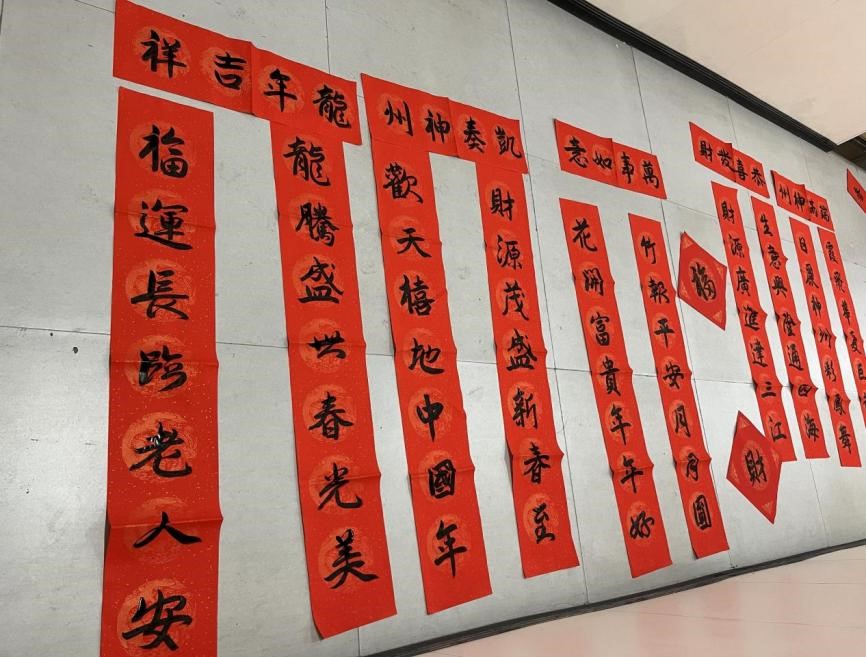 龍年吉祥
龍騰盛世春光美
福運長臨老人安
凱奏神州
財源茂盛新春至
歡天禧地中國年
萬事如意
竹報平安月月圓
花開富貴年年好
福
財
恭喜发財
生意興隆通四海
財源廣進達三江
神州
霞飛華夏巨
日神州彩鳳舞